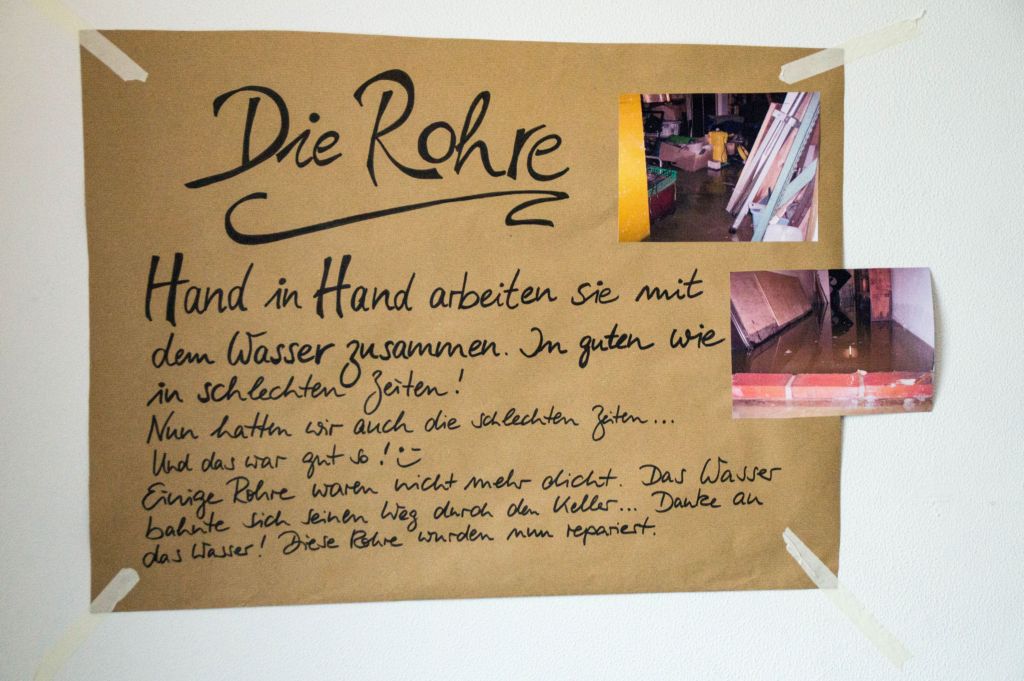 Die Rohre
Hand in Hand arbeiten sie mit
dem Wasser zusammen. Im guten wie
in schlechten Zeiten!
Nun hatten wir auch die schlechten Zeiten...
Und das war gut so! :-)
Einige Rohre waren nicht mehr dicht. Das Wasser
bahnte sich seinen Weg durch den Keller... Danke an
das Wasser! Diese Rohre wurden nun repariert.